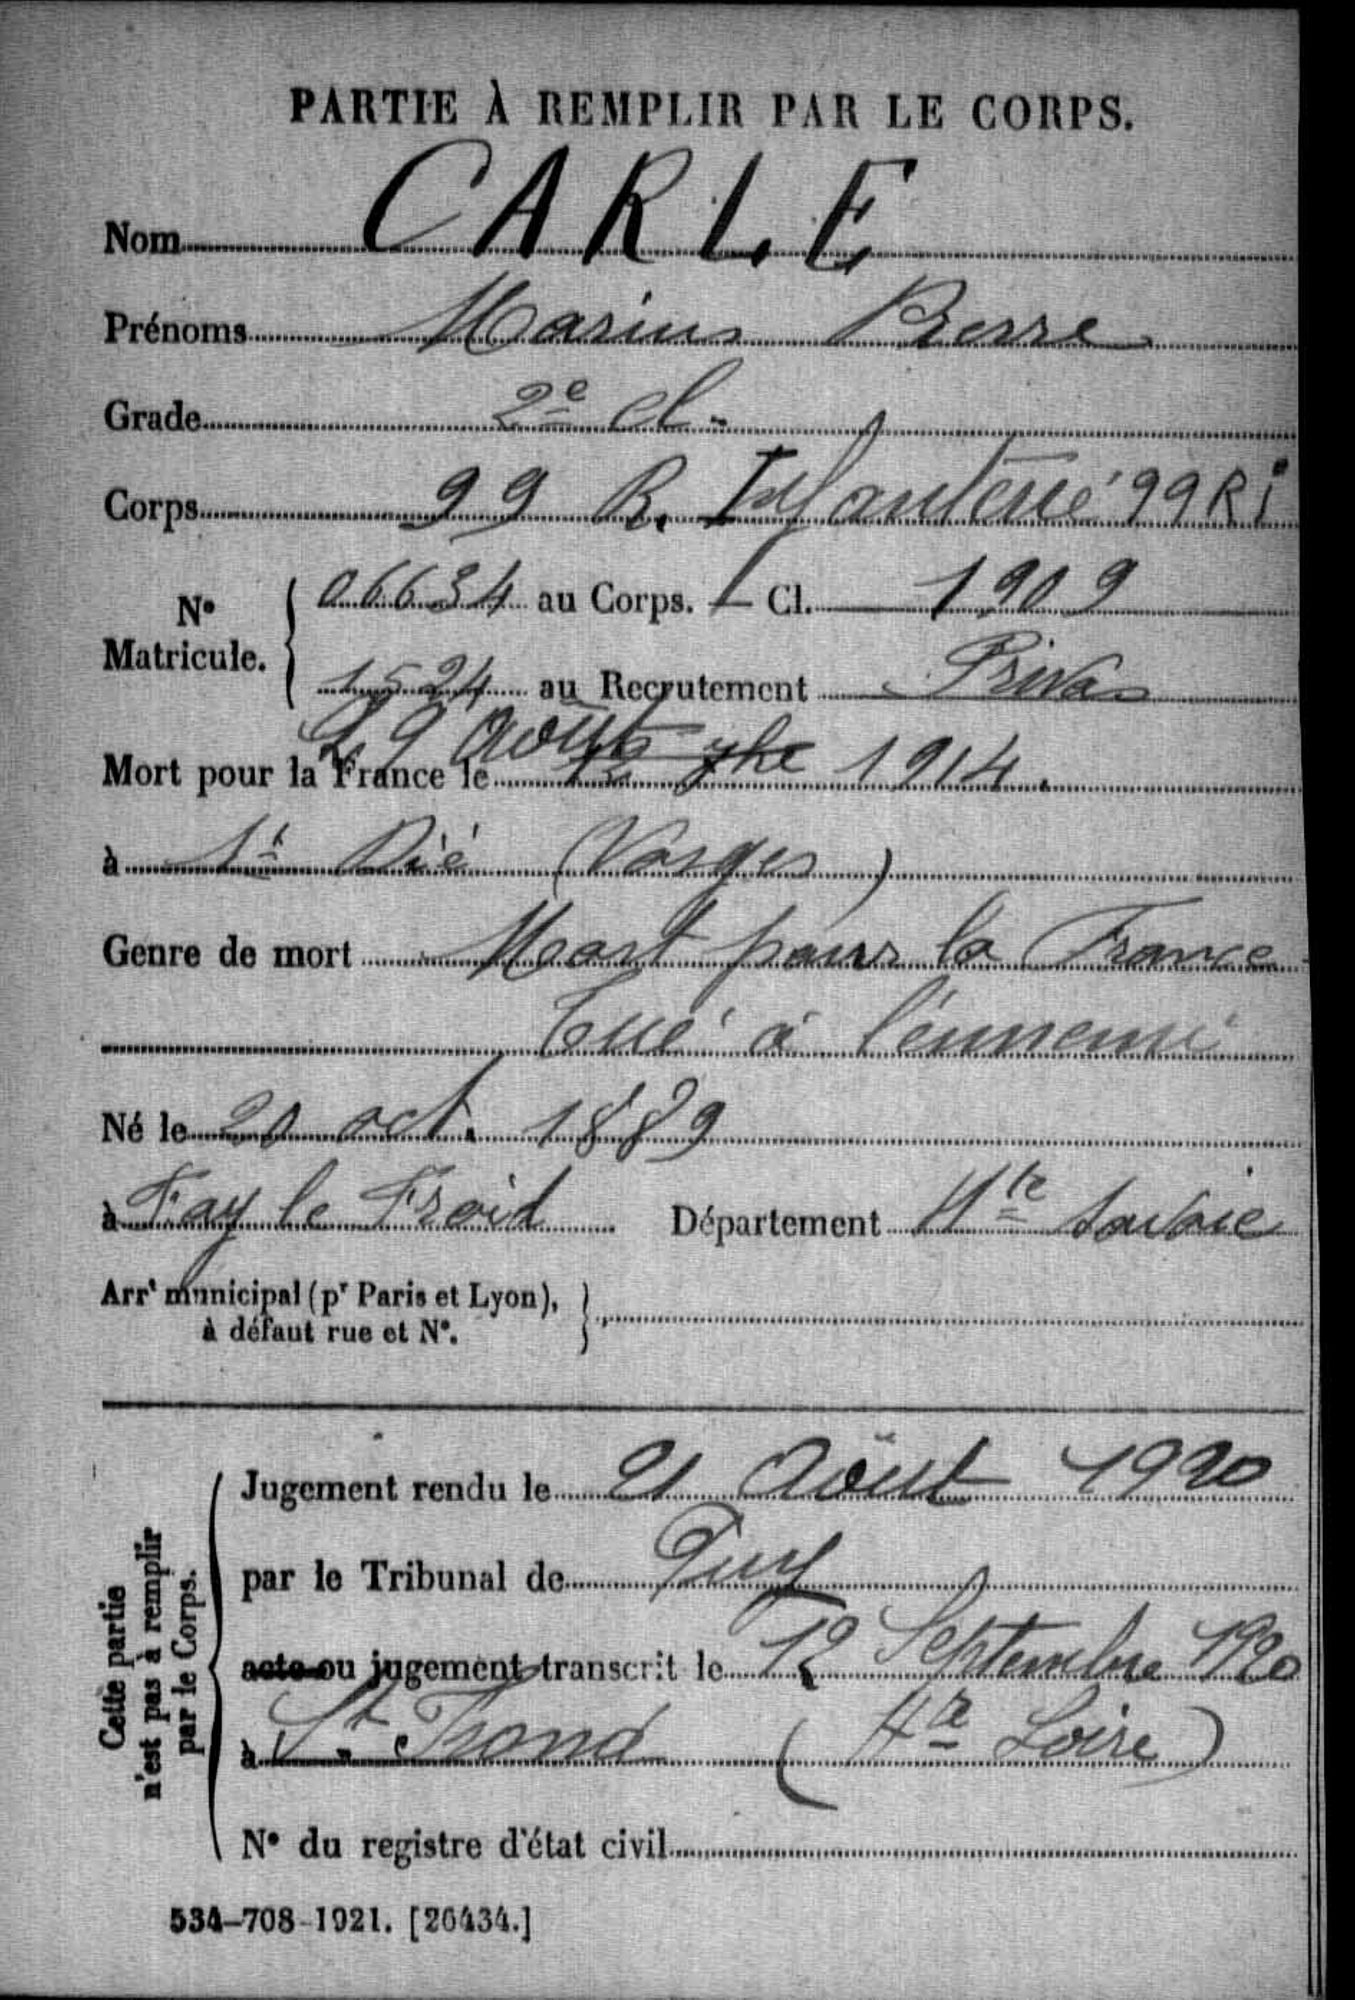 PARTIE À REMPLIR PAR LE CORPS.
Nom CARLE
Prénoms Marius Pierre
Grade 2e cl.
Corps 99 R. Infanterie 99 RI
N° Matricule. 06634 au Corps. — Cl. 1909
1524 au Recrutement Privas
29 Août
Mort pour la France le 12 7bre 1914.
à St Dié (Vosges)
Genre de mort Mort pour la France
Tué à l'ennemi
Né le 20 oct. 1889
à Fay le Froid Département Hte Savoie
Arrt municipal (pr Paris et Lyon),
à défaut rue et N°.
Cette partie
n'est pas à remplir
par le Corps.
Jugement rendu le 21 Août 1920
par le Tribunal de Puy
acte ou jugement transcrit le 12 Septembre 1920
à St. Front (Hte Loire)
N° du registre d'état civil
534-708-1921. [26434.]